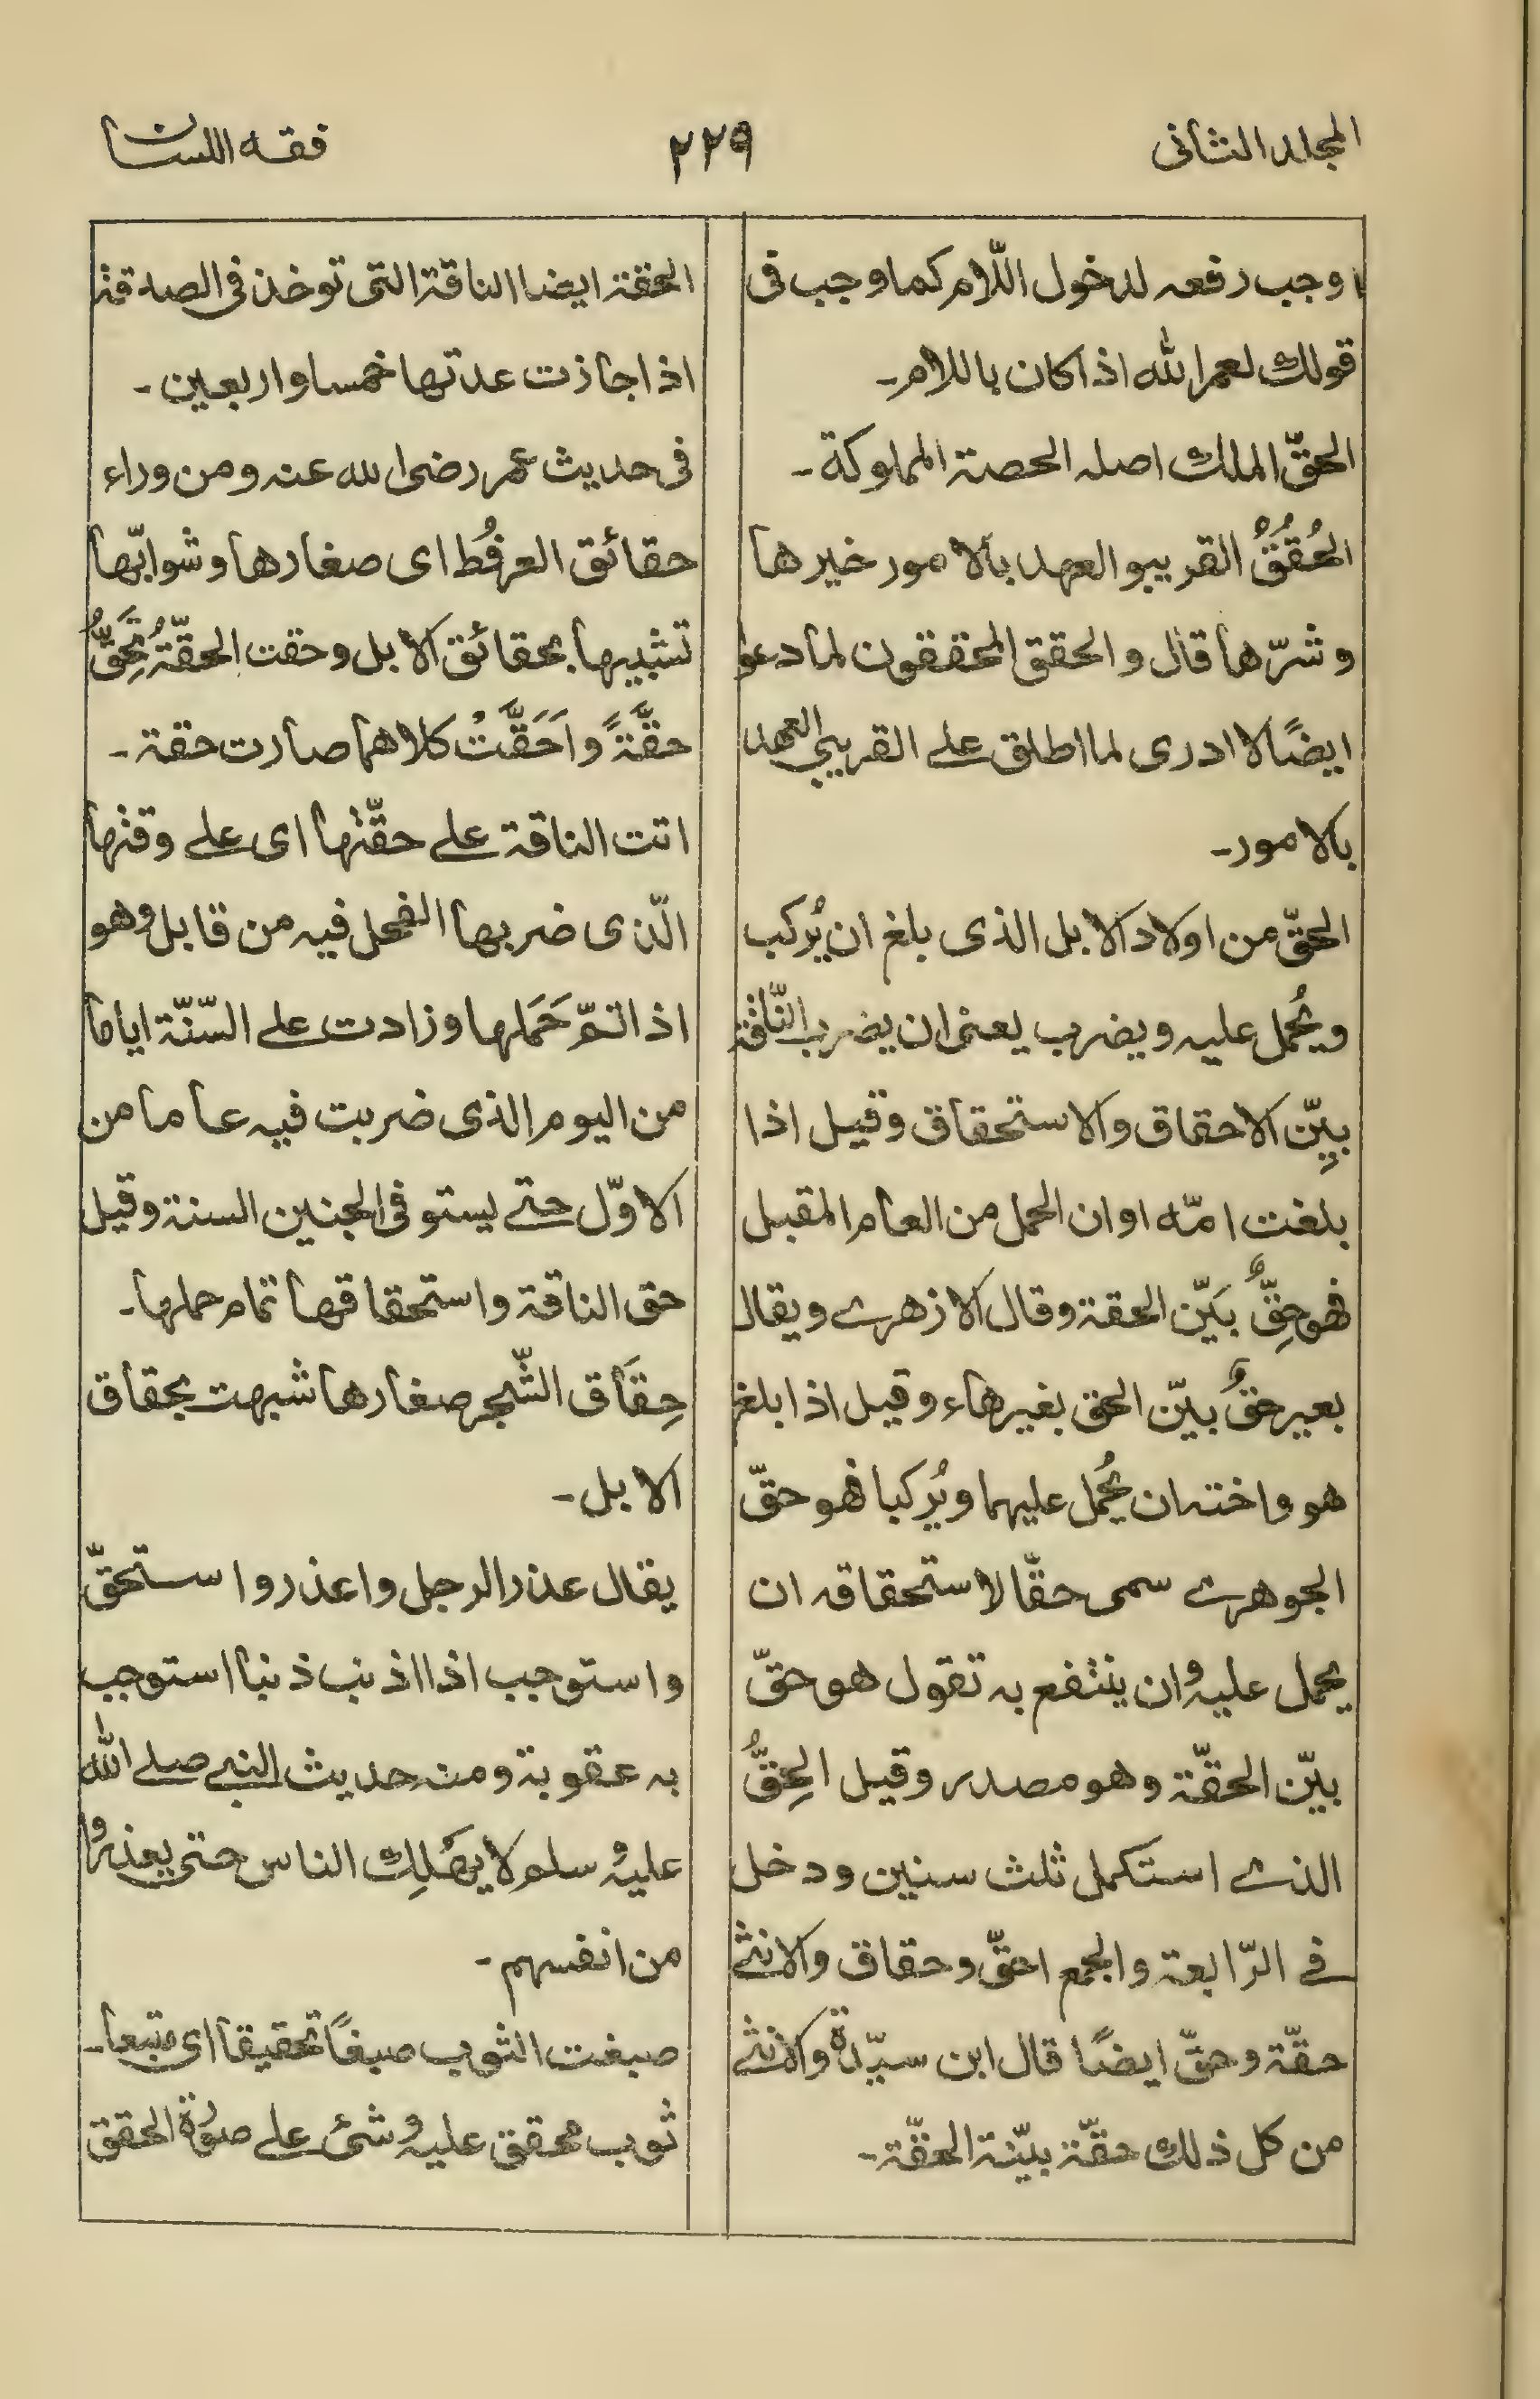 المجلد الثانی
۲۲۹
فقه اللسان
وجب رفعه لدخول اللّام كما وجب فى
قولك لعمر الله اذا كان باللام۔
الحقّ الملك اصله الحصة المملوكة۔
الحُقُقُ القريبو العهد بالامور خيرها
وشرّها قال والحقق المحققون لما دعوا
ايضًا لا ادرى لما اطلق على القريبى العهد
بالامور۔
الحقّ من اولاد الابل الذى بلغ ان يُركب
ويُحمل عليه ويضرب يعنى ان يضرب النّاقة
بيّن الاحقاق والاستحقاق وقيل اذا
بلغت امّه اوان الحمل من العام المقبل
فهو حِقٌّ بَيّن الحقة وقال الازهرے ويقال
بعير حقٌّ بيّن الحق بغير هاء وقيل اذا بلغ
هو واخته ان يُحمل عليهما ويُركبا فهو حقّ
الجوهرے سمى حقّا لاستحقاقه ان
يحمل عليه وان ينتفع به تقول هو حقّ
بيّن الحقّة وهو مصدر وقيل الحِقُّ
الذے استكمل ثلث سنين ودخل
فے الرّابعة والجمع احقّ وحقاق والانثے
حقّة وحقّ ايضًا قال ابن سيّدة والانثے
من كل ذلك حقّة بيّنة الحقّة۔
الحقة ايضا الناقة التى توخذ فى الصدقة
اذا جازت عدتها خمسا واربعين۔
فى حديث عمر رضى الله عنه ومن وراء
حقائق العرفُط اى صغارها وشوابّها
تشبيها بحقائق الابل وحقت الحقّةُ تَحِقُّ
حقَّةً واَحَقَّتْ كلاهما صارت حقة۔
اتت الناقة علے حقّتها اى علے وقتها
الّذى ضربها الفحل فيه من قابل وهو
اذا تمّ حَمَلها وزادت علے السّنّة اياما
من اليوم الذى ضربت فيه عاما من
الاوّل حتے يستوفى الجنين السنة وقيل
حق الناقة واستحقاقها تمام حملها۔
حِقَاق الشّجر صغارها شبهت بحقاق
الابل۔
يقال عذر الرجل واعذر واستحقّ
واستوجب اذا اذنب ذنبا استوجب
به عقوبة ومنه حديث النبے صلے الله
عليه وسلم لا يهلِك الناس حتى يعذروا
من انفسهم۔
صبغت الثوب صبغًا تحقيقا اى متبعا۔
ثوب محقق عليه وشئ علے صورة الحقق